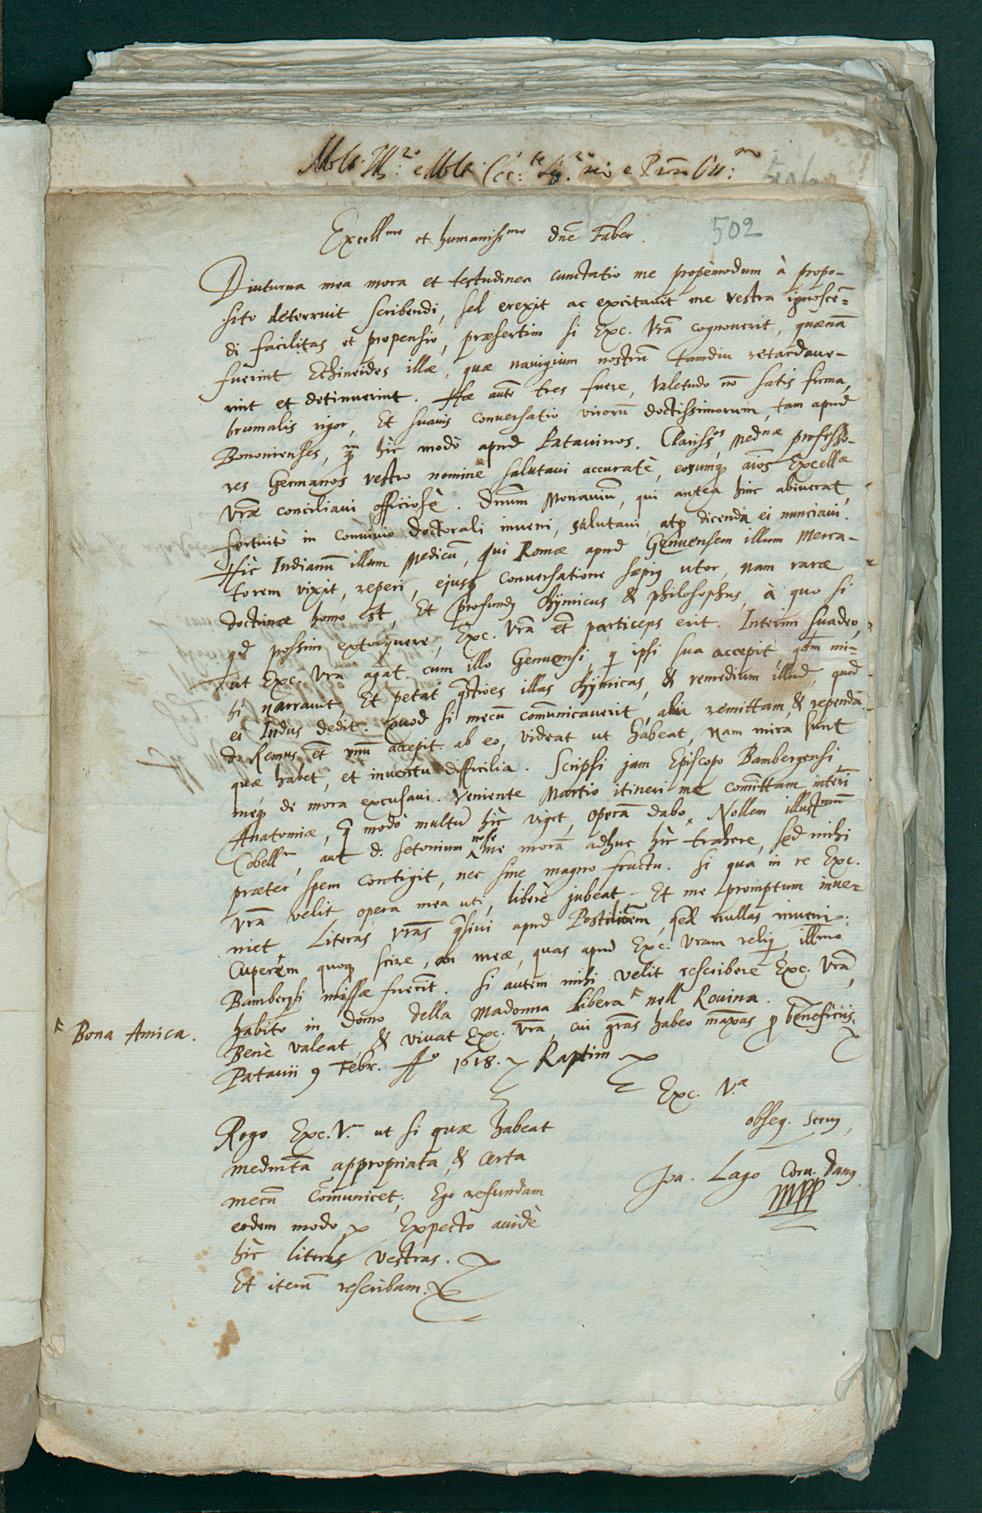 502
Excell.mo et humaniss.mo Dnē Faber.
Diuturna mea mora et testudinea cunctatio me propèmodum à propo-
sito deterruit scribendi, sed erexit ac excitauit me vestra ignoscē-
di facilitas et propensio, præsertim si Exc. Vrā cognouerit, quænā
fuerint Echineides illæ, quæ nauigium nostrū tamdiu retardaue-
rint et detinuerint. Hæ autē tres fuere, valetudo nō satis firma,
brumalis rigor, Et suauis conuersatio virorū doctissimorum, tam apud
Bononienses, qm̄ hic modò apud Patauinos. Clariss.os Med.næ professo-
res Germanos vestro nomine salutaui accuratè, eorumq aīos Excell.æ
Vræ conciliaui officiosè. Dnum Monauium, qui antea hinc abiuerat,
fortuitò in conuiuio doctorali inueni, salutaui, atq dicenda ei nunciaui.
Hic Indianū illum Medicū, qui Romæ apud Genuensem illum Merca-
torem vixit, reperi, ejusq conuersatione sæpiq utor, nam raræ
doctrinæ homo est, Et profundq chÿmicus & philosophus, à quo si
qd possim extorquere, Exc. Vrā etē particeps erit. Interim suadeo,
ut Exc. Vra agat cum illo Genuensi, q ipsi sua accepit, qm̄ mi-
hi narrauit Et petat q̄stiões illas chÿmicas, & remedium illud, quod
ei Indus dedit. Quod si mecū com̄unicauerit, alia remittam, & rependā
Do Remus etē unū accepit ab eo, videat ut habeat, nam mira sunt
quæ habet, et inuentu difficilia. Scripsi jam Episcopo Bambergensi,
meq de mora excusaui. Veniente Martio itineri me com̄ittam, interim
Anatomiæ, q̄ modò multū hic viget, operā dabo. Nollem illustm̄ū
Cobell.m, aut D. Setonium nosse me morā adhuc hic trahere, sed mihi
præter spem contigit, nec sine magno fructu. Si qua in re Exc.
Vrā velit, opera mea uti, liberè jubeat. Et me promptum inue-
niet. Literas vrās q̄siui apud Postilionem, sed nullas inueni.
Cuperem quoq scire, an meæ, quas apud Exc. Vram reliq, ill.mo
Bambergsi missæ fuerīt. Si autem mihi velit rescribere Exc. Vrā,
habito in Domo della Madonna Libera F nell Rouina.
F Bona Amica.
Benè valeat, & viuat Exc. Vrā, cui grās habeo maxas p beneficiis.
Patauii 9 Febr. Ao 1618. Raptim
Exc. V.æ
obseq. seruq,
Joa. Lago Coru. Dang
mpp
Rogo Exc. V. ut si quæ habeat
medmta appropriata, & certa
mecū com̄unicet, Ego refundam
eodem modo. Expecto auidè
hic literas vestras.
Et iterū rescribam.